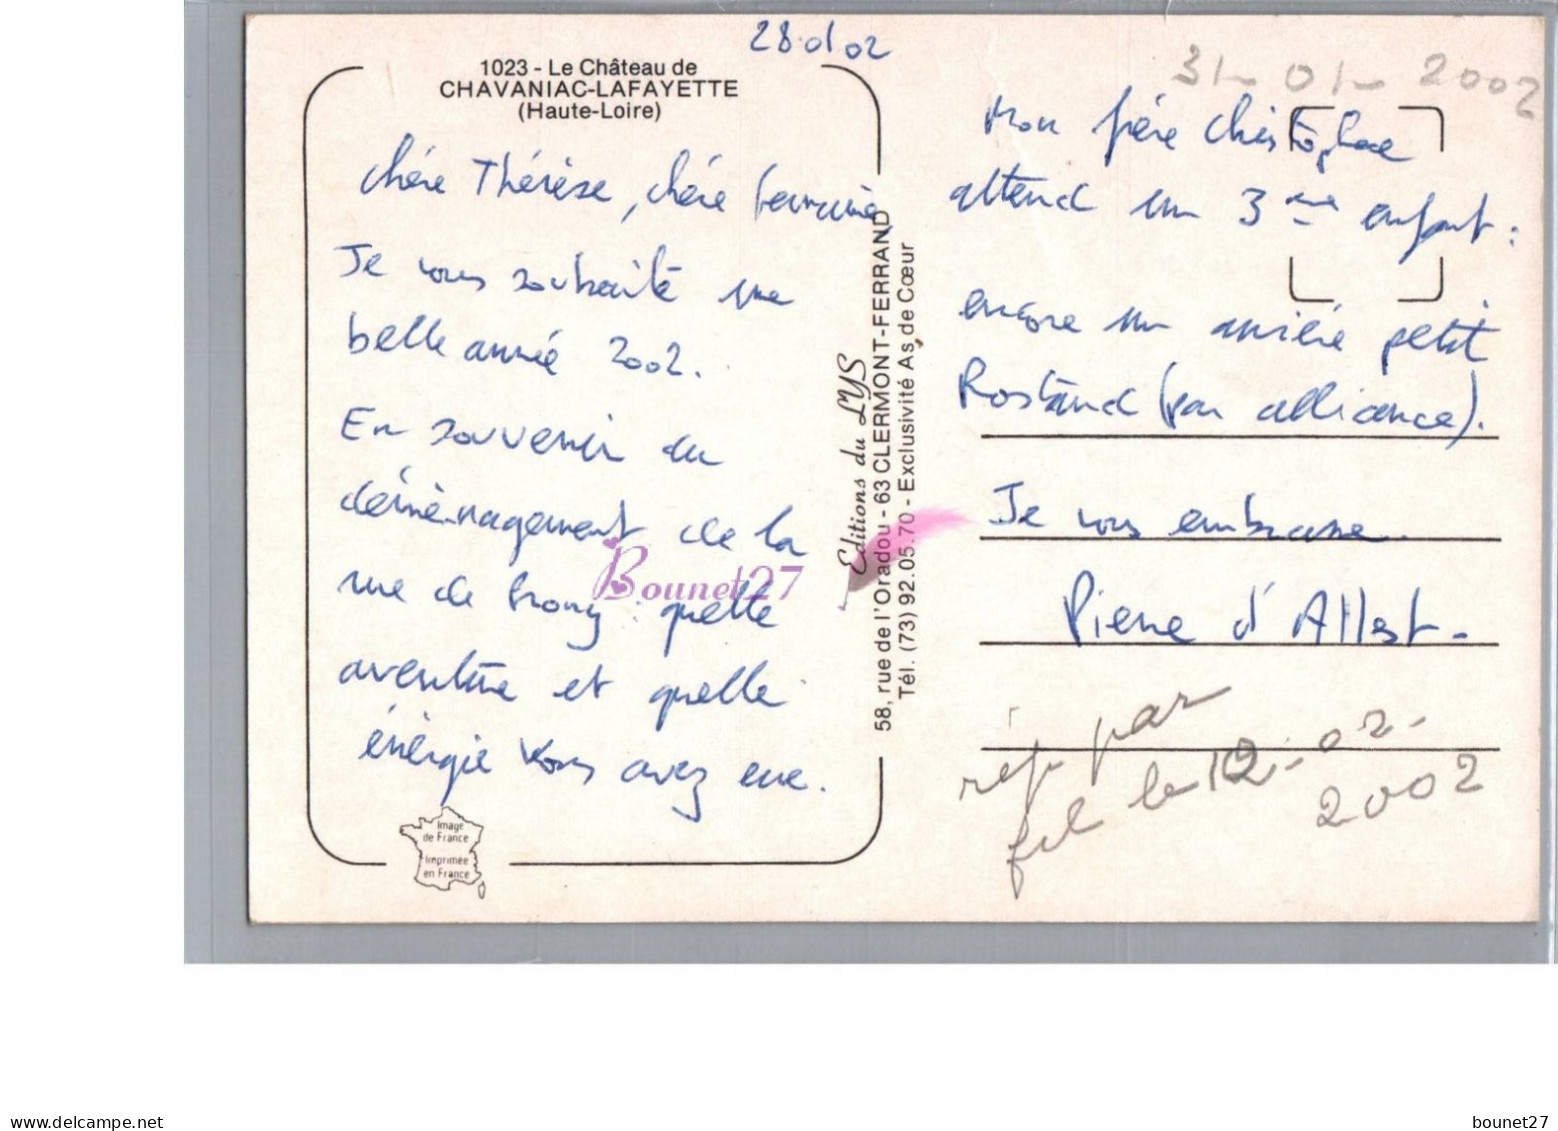 28.01 02
1023 - Le Château de
CHAVANIAC-LAFAYETTE
(Haute-Loire)
chère Thérèse, chère
Je vous souhaite une
belle année 2002.
En souvenir du
déménagement de la
rue de Prony : quelle
aventure et quelle
énergie vous avez eue.
Image
de France
Imprimée
en France
Editions du LYS
58, rue de l'Oradou - 63 CLERMONT-FERRAND
Tél. (73) 92.05.70 - Exclusivité As de Cœur
Bounet27
31-01-2002
Mon frère Christophe
attend un 3ème enfant :
encore un arrière petit
Rostand (par alliance).
Je vous embrasse.
Pierre d'Allest.
rép par
fil le 12-02-
2002
www.delcampe.net
bounet27